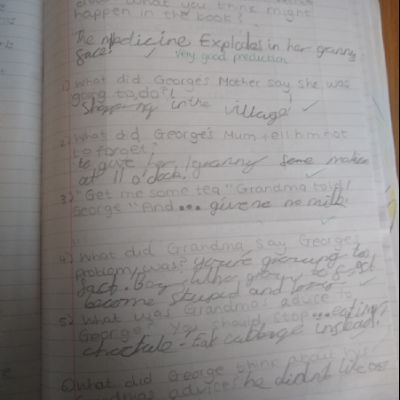 what you think might
happen in the book?
The medicine Explodes in her granny
face!
very good prediction
1) What did George's Mother say she was
going to do?
Shopping in the village
2) What did George's Mum tell him not
to forget?
to give her/granny some medice
at 11 o'clock.
3) "Get me some tea" Grandma told
George "And... give no milk.
4) What did Grandma say George's
problem was? You're growing too
fast. boys who grow to fast
become stupid and
5) What was Grandma's advice to
George? You should stop... eating
choclate - Eat cabbage instead.
6) What did George think about his
advices he didn't like